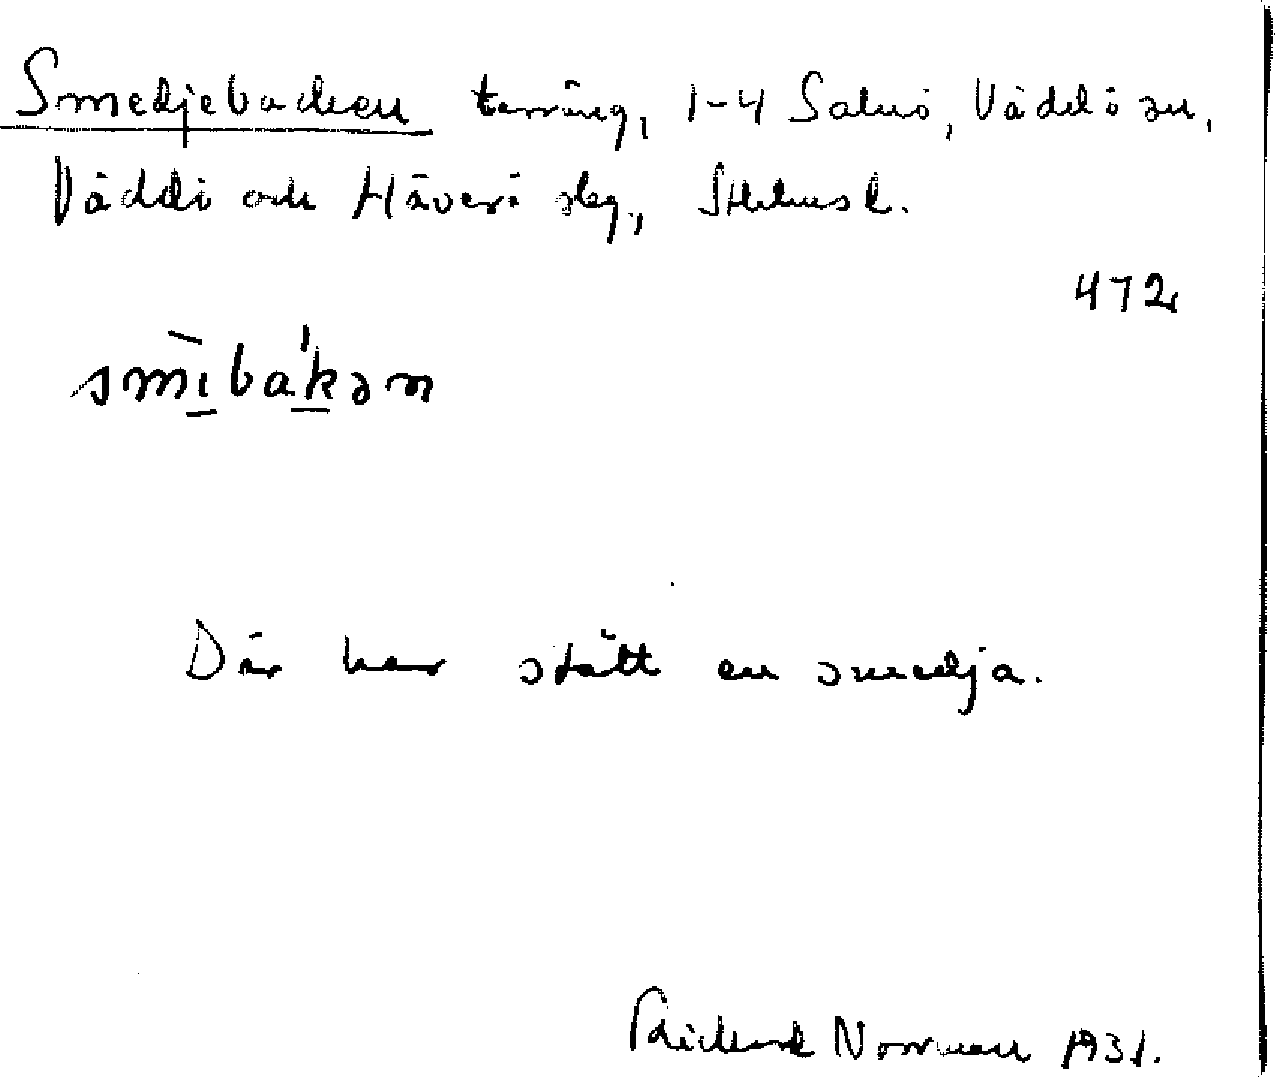 Smedjebacken terräng, 1-4 Salnö, Väddö sn,
Väddö och Häverö slg., Sthlmsl.
472
smìbák̠ən
Där har stått en smedja.
Rickard Norman 1931.